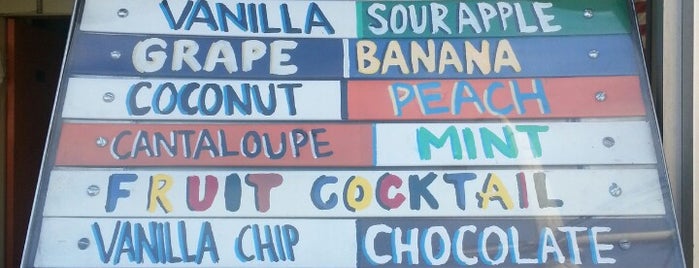 VANILLA SOUR APPLE
GRAPE BANANA
COCONUT PEACH
CANTALOUPE MINT
FRUIT COCKTAIL
VANILLA CHIP CHOCOLATE